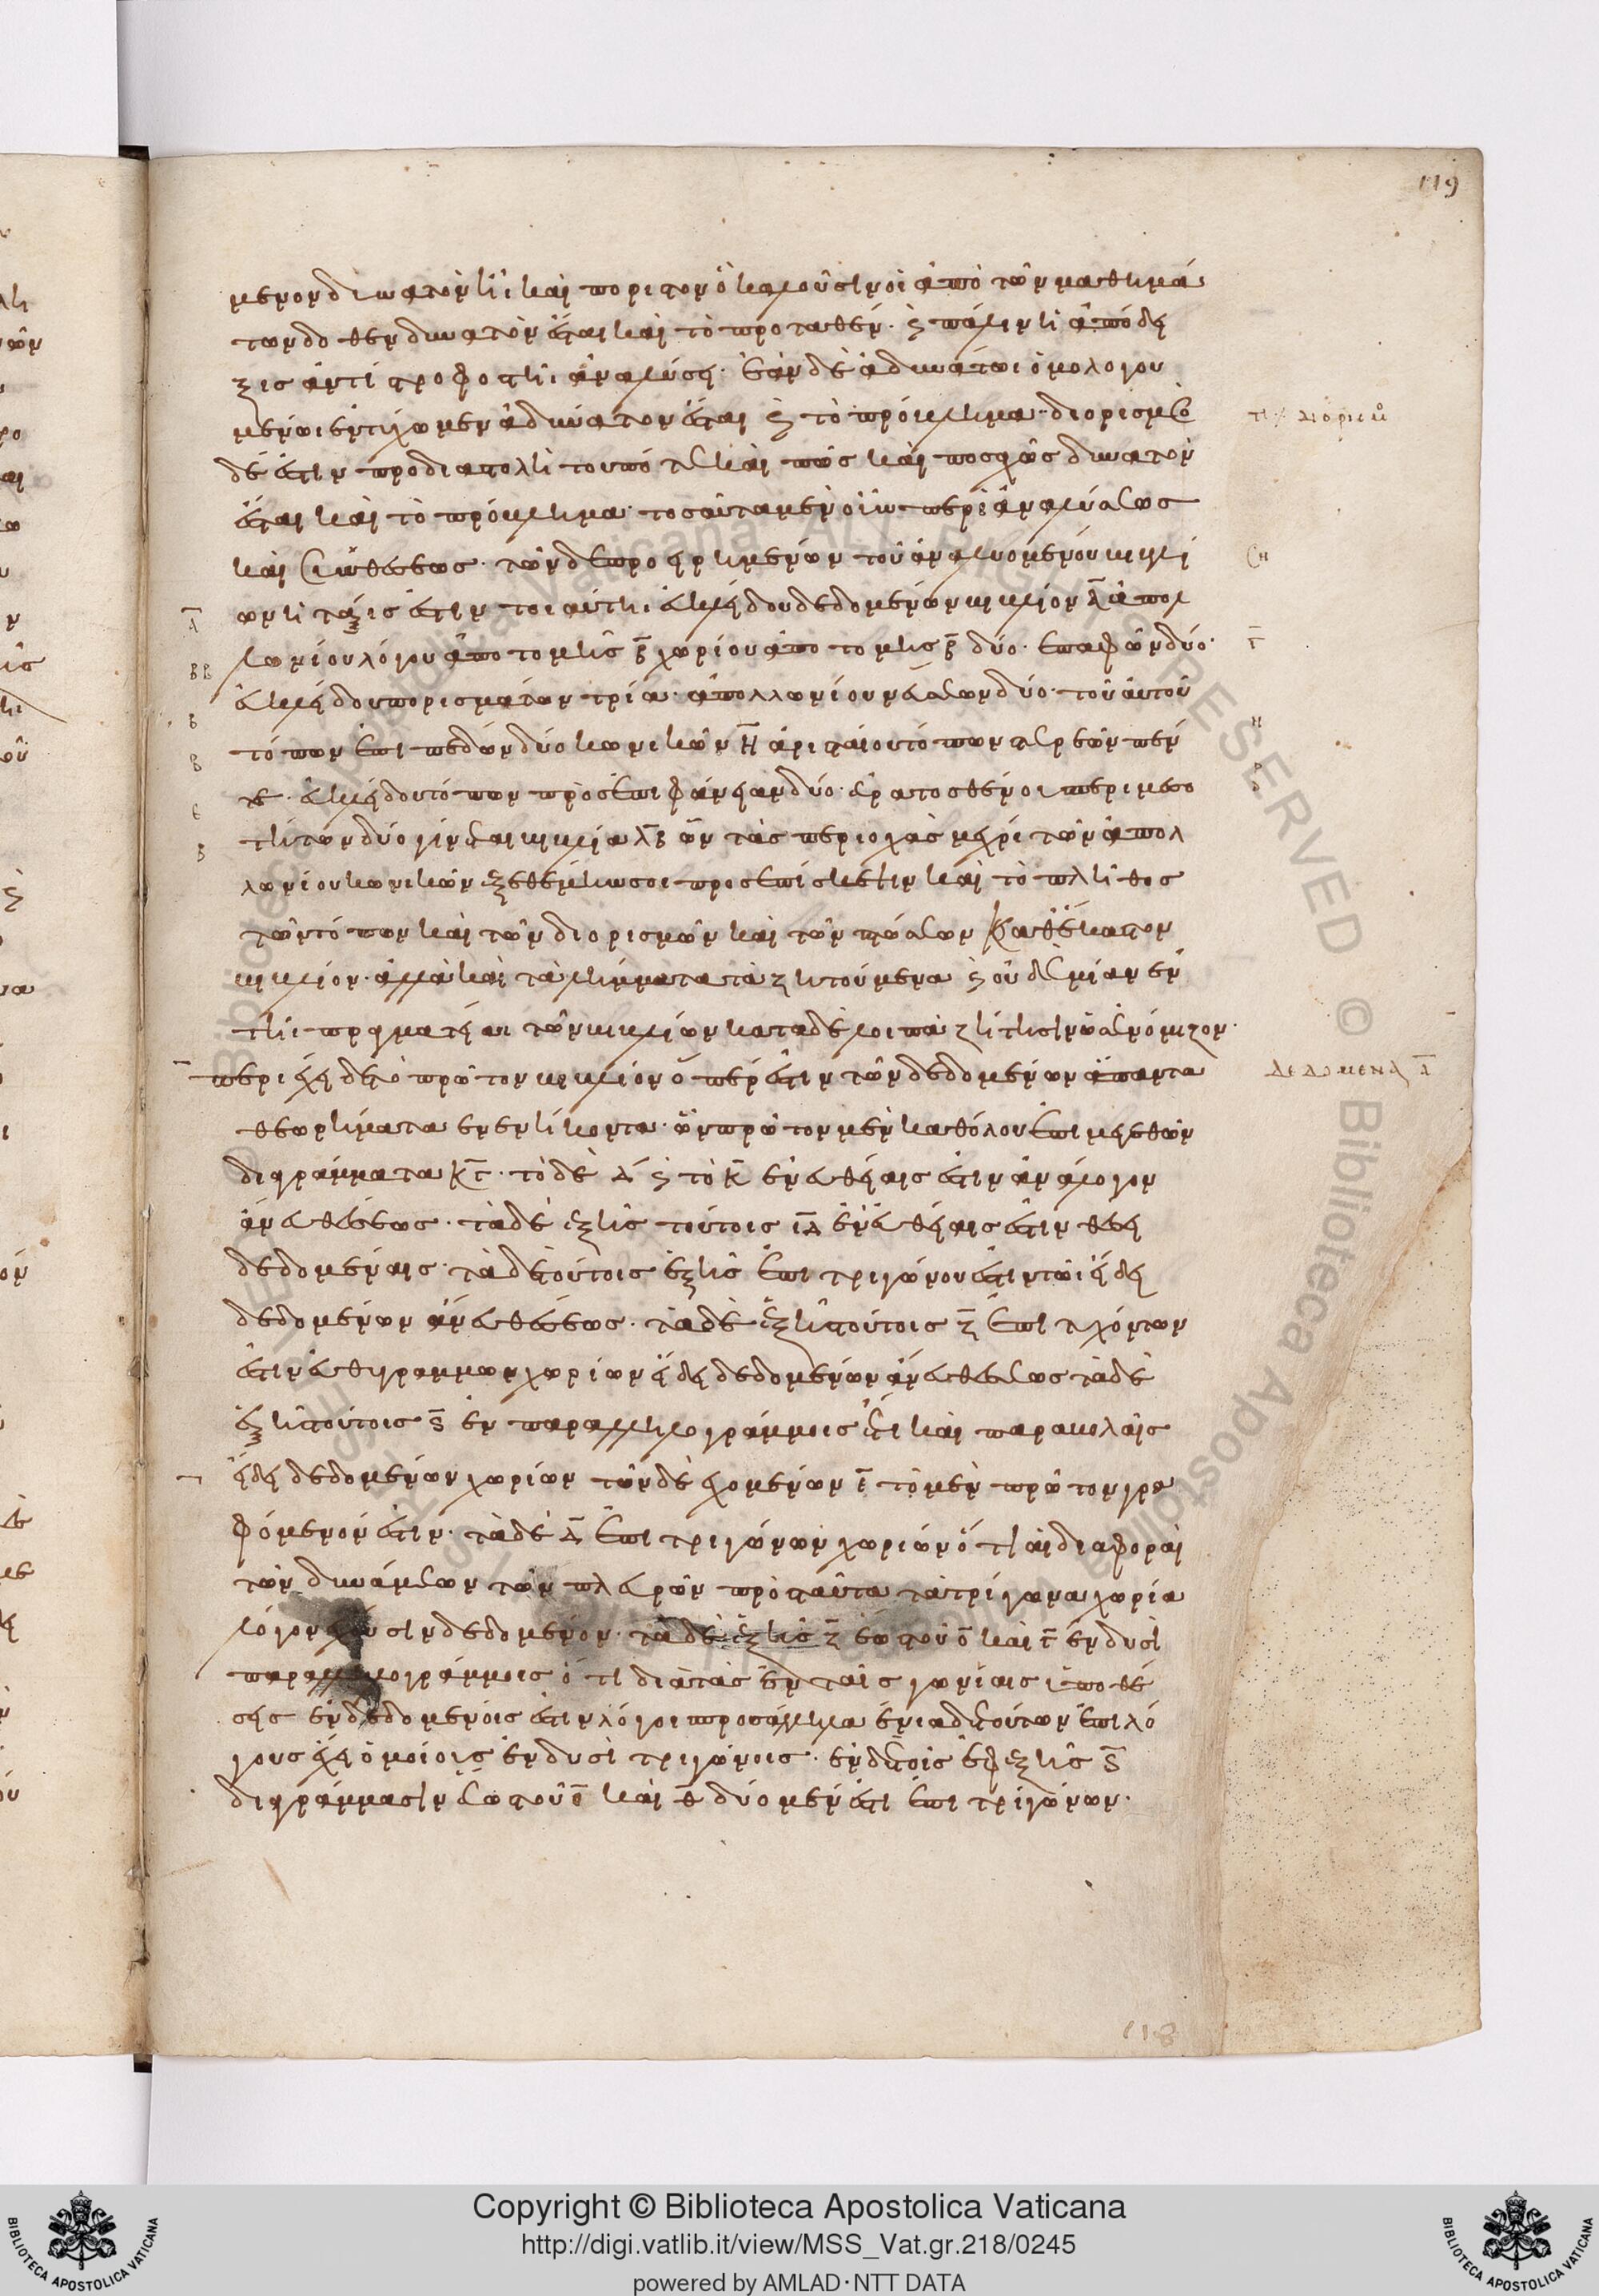 119
μενον δυνατὸν ἦι καὶ ποριστὸν ὃ καλοῦσιν οἱ ἀπὸ τῶν μαθημά
των δοθὲν δυνατὸν ἔσται καὶ τὸ προταθέν· καὶ πάλιν ἡ ἀπόδει
ξις ἀντίστροφος τῆι ἀναλύσει· ἐὰν δὲ ἀδυνάτωι ὁμολογου
μένωι ἐντύχωμεν ἀδύνατον ἔσται καὶ τὸ πρόβλημα· διορισμὸς
τί / διορισμο
δέ ἐστιν προδιαστολὴ τοῦ πότε καὶ πῶς καὶ ποσαχῶς δυνατὸν
ἔσται καὶ τὸ πρόβλημα· τοσαῦτα μὲν οὖν περὶ ἀναλύσεως
καὶ συνθέσεως· τῶν δὲ προειρημένων τοῦ ἀναλυομένου βιβλί
ων ἡ τάξις ἐστὶν τοιαύτη· εὐκλείδου δεδομένων βιβλίον Α̅ ἀπολ
λωνίου λόγου ἀποτομῆς β̅ χωρίου ἀποτομῆς β̅ δύο· ἐπαφῶν δύο·
εὐκλείδου πορισμάτων τρία· ἀπολλωνίου νεύσεων δύο· τοῦ αὐτοῦ
τόπων ἐπιπέδων δύο κωνικῶν Η̅ ἀρισταίου τόπων στερεῶν πέν
τε· εὐκλείδου τόπων πρὸς ἐπιφάνειαν δύο· ἐρατοσθένου περὶ μεσο
τήτων δύο γίνεται βιβλία λ̅β̅ ὧν τὰς περιοχὰς μέχρι τῶν ἀπολ
λωνίου κωνικῶν ἐξεθέμην σοι πρὸς ἐπίσκεψιν καὶ τὸ πλῆθος
τῶν τόπων καὶ τῶν διορισμῶν καὶ τῶν πτώσεων καθ᾽ ἕκαστον
βιβλίον· ἀλλὰ καὶ τὰ λήμματα τὰ ζητούμενα καὶ οὐδεμίαν ἐν
τῆι πραγματείαι τῶν βιβλίων καταλέλοιπα ζήτησιν ὡς ἐνόμιζον·
περιέχει δὲ τὸ πρῶτον βιβλίον ὅπερ ἐστὶν τῶν δεδομένων ἅπαντα
ΔΕΔΟΜΕΝΑ Α̅
θεωρήματα ἐνενήκοντα· ὧν πρῶτον μὲν καθόλου ἐπὶ μεγεθῶν
διαγράμματα κ̅γ̅· τὸ δὲ Δ καὶ τὸ κ̅ ἐν εὐθείαις ἐστὶν ἀνάλογον
ἄνευ θέσεως· τὰ δὲ ἑξῆς τούτοις ι̅δ̅ ἐν εὐθείαις ἐστὶν θέσει
δεδομέναις· τὰ δὲ τούτοις ἑξῆς ἐπὶ τριγώνου ἐστὶν τῶι εἴδει
δεδομένων ἄνευ θέσεως· τὰ δὲ ἑξῆς τούτοις ζ̅ ἐπὶ τυχόντων
ἐστὶν εὐθυγράμμων χωρίων εἴδει δεδομένων ἄνευ θέσεως τὰ δὲ
ἑξῆς τούτοις ϛ̅ ἐν παραλληλογράμμοις ἐστὶ καὶ παραβολαῖς
εἴδει δεδομένων χωρίων τῶν δὲ ἐχομένων ε̅ τὸ μὲν πρῶτον γρα
φόμενόν ἐστιν· τὰ δὲ Δ̅ ἐπὶ τριγώνων χωρίων ὅτι αἱ διαφοραὶ
τῶν δυνάμεων τῶν πλευρῶν πρὸς ταῦτα τὰ τρίγωνα χωρία
λόγον ἔχουσιν δεδομένον· τὰ δὲ ἑξῆς ζ̅ ἕως τοῦ ο̅ καὶ γ̅ ἐν δυσὶ
παραλληλογράμμοις ὅτι διὰ τὰς ἐν ταῖς γωνίαις ὑποθέ
σεις ἐν δεδομένοις ἐστὶν λόγοι πρὸς ἄλληλα ἔνια δὲ τούτων ἐπιλό
γους ἔχει ὁμοίους ἐν δυσὶ τριγώνοις· ἐν δὲ τοῖς ἐφεξῆς ϛ̅
διαγράμμασιν ἕως τοῦ ο̅ καὶ θ̅ δύο μέν ἐστι ἐπὶ τριγώνων·
118
Copyright © Biblioteca Apostolica Vaticana
http://digi.vatlib.it/view/MSS_Vat.gr.218/0245
powered by AMLAD·NTT DATA
BIBLIOTECA APOSTOLICA VATICANA
BIBLIOTECA APOSTOLICA VATICANA